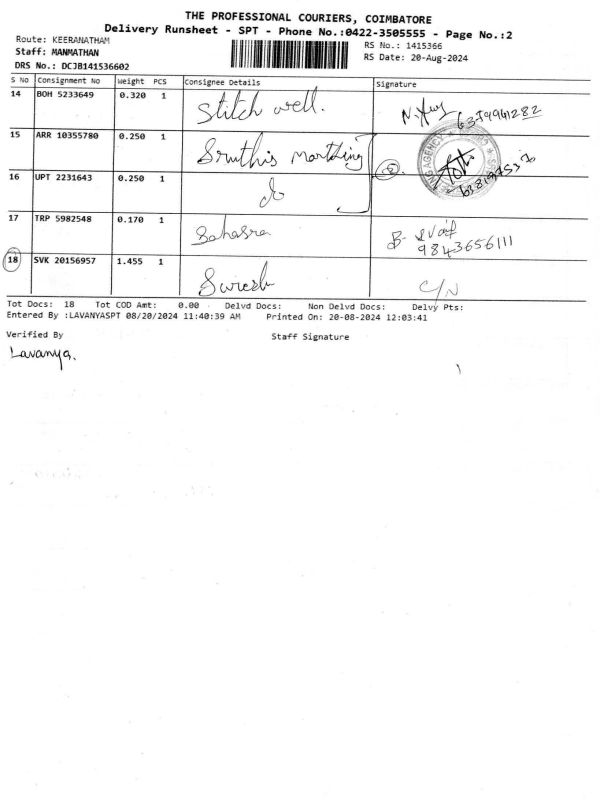 THE PROFESSIONAL COURIERS, COIMBATORE
Delivery Runsheet - SPT - Phone No.:0422-3505555 - Page No.:2
Route: KEERANATHAM
Staff: MANMATHAN
DRS No.: DCJB141536602
RS No.: 1415366
RS Date: 20-Aug-2024
S No Consignment No Weight PCS Consignee Details Signature
14 BOH 5233649 0.320 1 Stitch well.
15 ARR 10355780 0.250 1 Sruthis
16 UPT 2231643 0.250 1 do
17 TRP 5982548 0.170 1 Sahasra 9843656111
18 SVK 20156957 1.455 1 Suresh C/N
Tot Docs: 18 Tot COD Amt: 0.00 Delvd Docs: Non Delvd Docs: Delvy Pts:
Entered By :LAVANYASPT 08/20/2024 11:40:39 AM Printed On: 20-08-2024 12:03:41
Verified By Staff Signature
Lavanya.